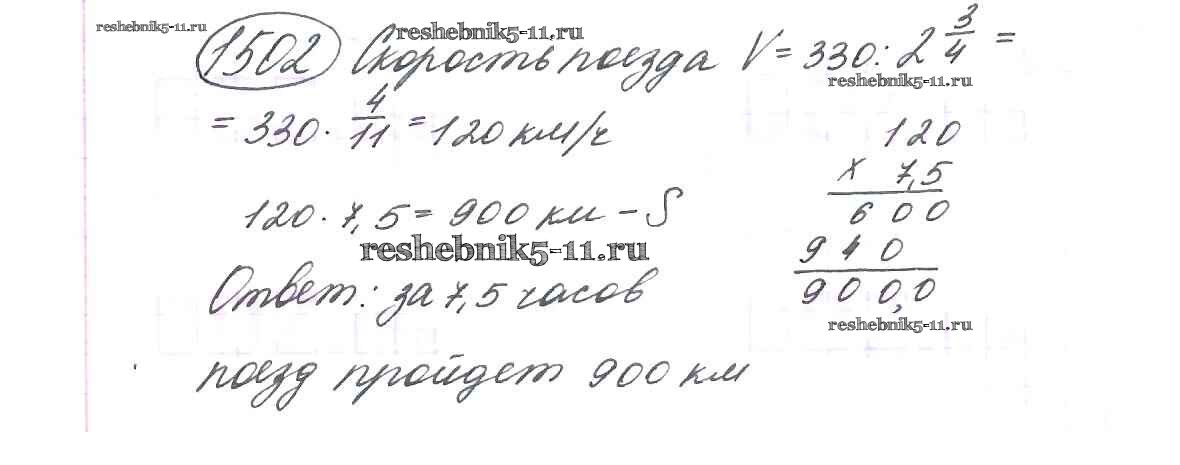 reshebnik5-11.ru
reshebnik5-11.ru
1502 Скорость поезда V = 330 : 2 3/4 =
reshebnik5-11.ru
= 330 · 4/11 = 120 км/ч
120
x 7,5
120 · 7,5 = 900 км - S
600
reshebnik5-11.ru
940
Ответ: за 7,5 часов
900,0
reshebnik5-11.ru
поезд пройдет 900 км